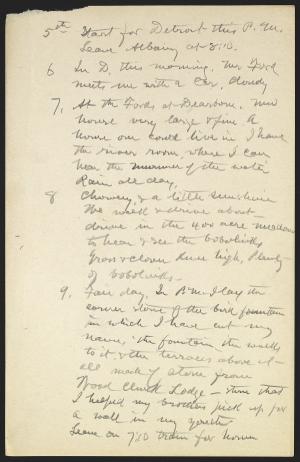 5th Start for Detroit this P.M.
Leave Albany at 8:10.
6 In D. this morning, Mr Ford
meets me with a car, cloudy
7, At the Fords at Dearborn, new
house very large & fine a
house one could live in I have
the river room, where I can
hear the murmur of the water
Rain all day,
8 Showery, & a little sunshine
We walk & drive about —
drive in the 400 acre meadow
to hear & see the bobolinks
Grass & clover knee high, Plenty
of bobolinks.
9, Fair day, In P.M. I lay the
corner stone of the bird fountain
in which I have cut my
name; the fountain, the walls
to it & the terraces above it —
all made of stone from
Wood Chuck Lodge — stone that
I helped my brothers pick up for
a wall in my youth
Leave on 7:10 train for home